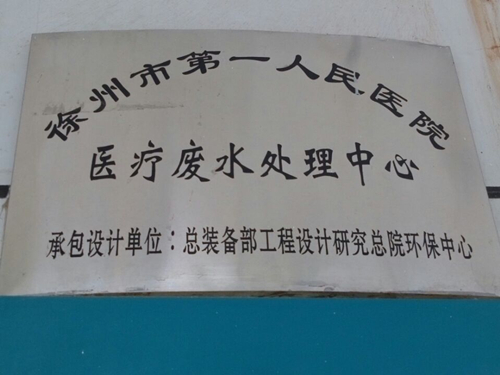 徐州市第一人民医院
医疗废水处理中心
承包设计单位：总装备部工程设计研究总院环保中心